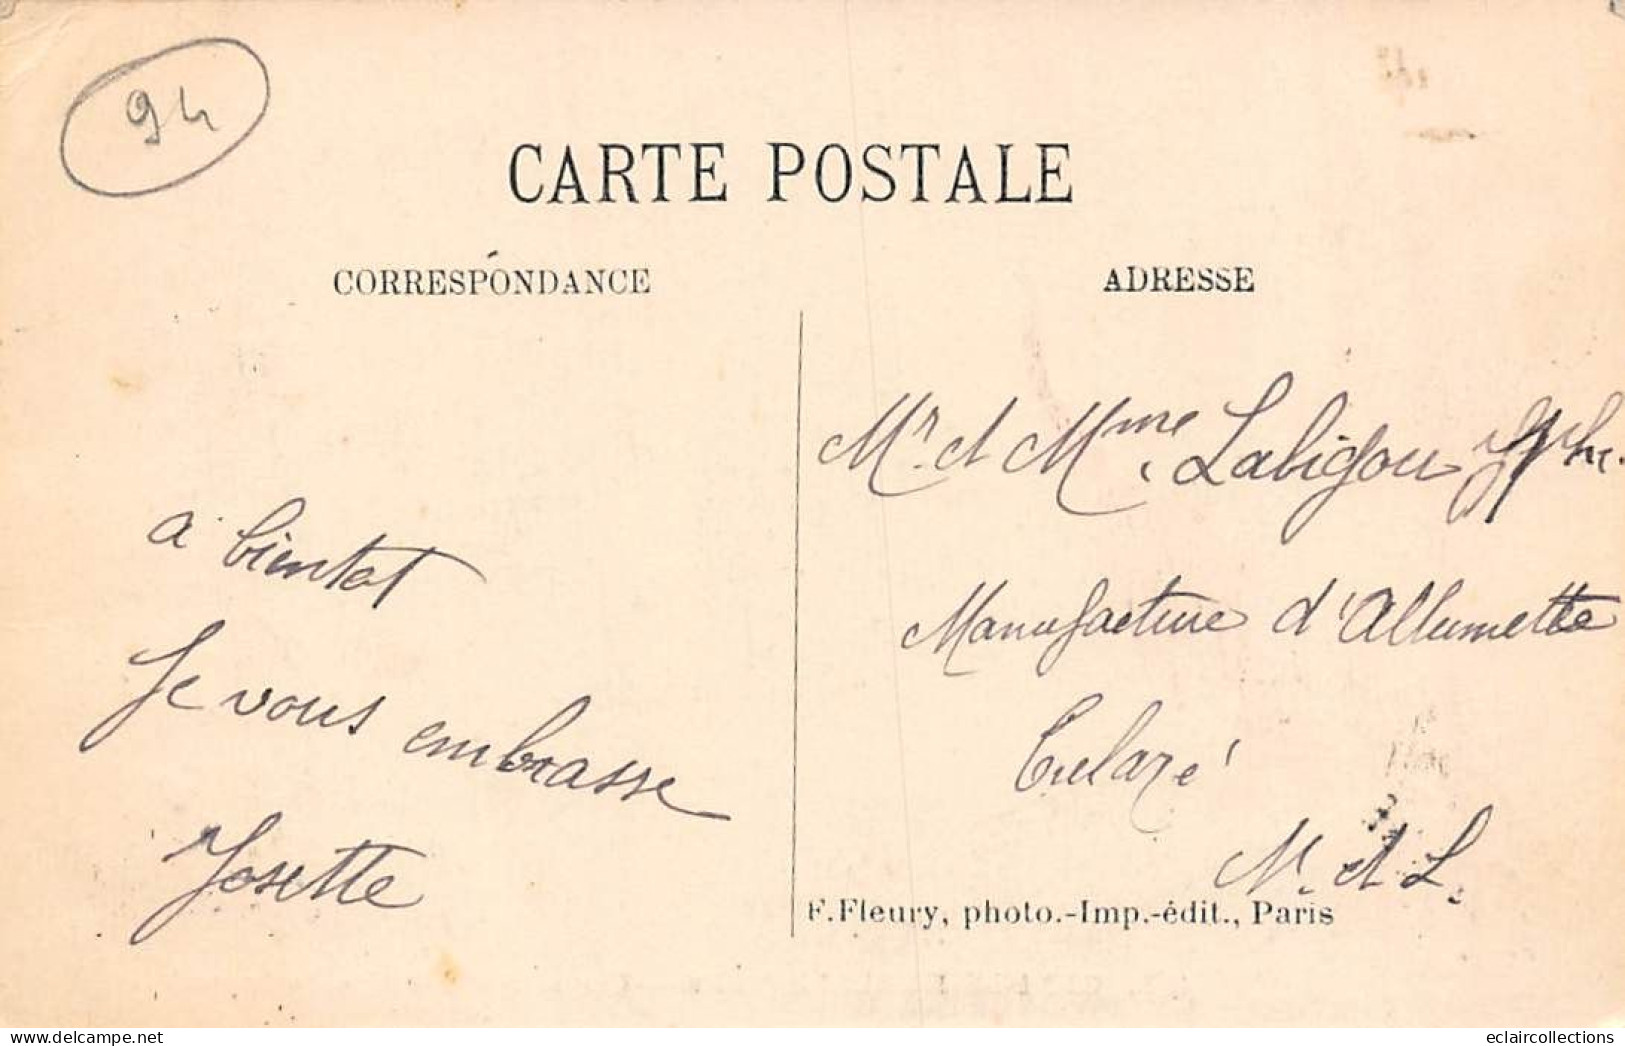 94
CARTE POSTALE
CORRESPONDANCE
ADRESSE
a bientot
Je vous embrasse
Josette
Mr et Mme Labigou
Manufacture d'Allumette
Trelazé
M. et L.
F. Fleury, photo.-Imp.-édit., Paris
delcampe.net
eclaircollections